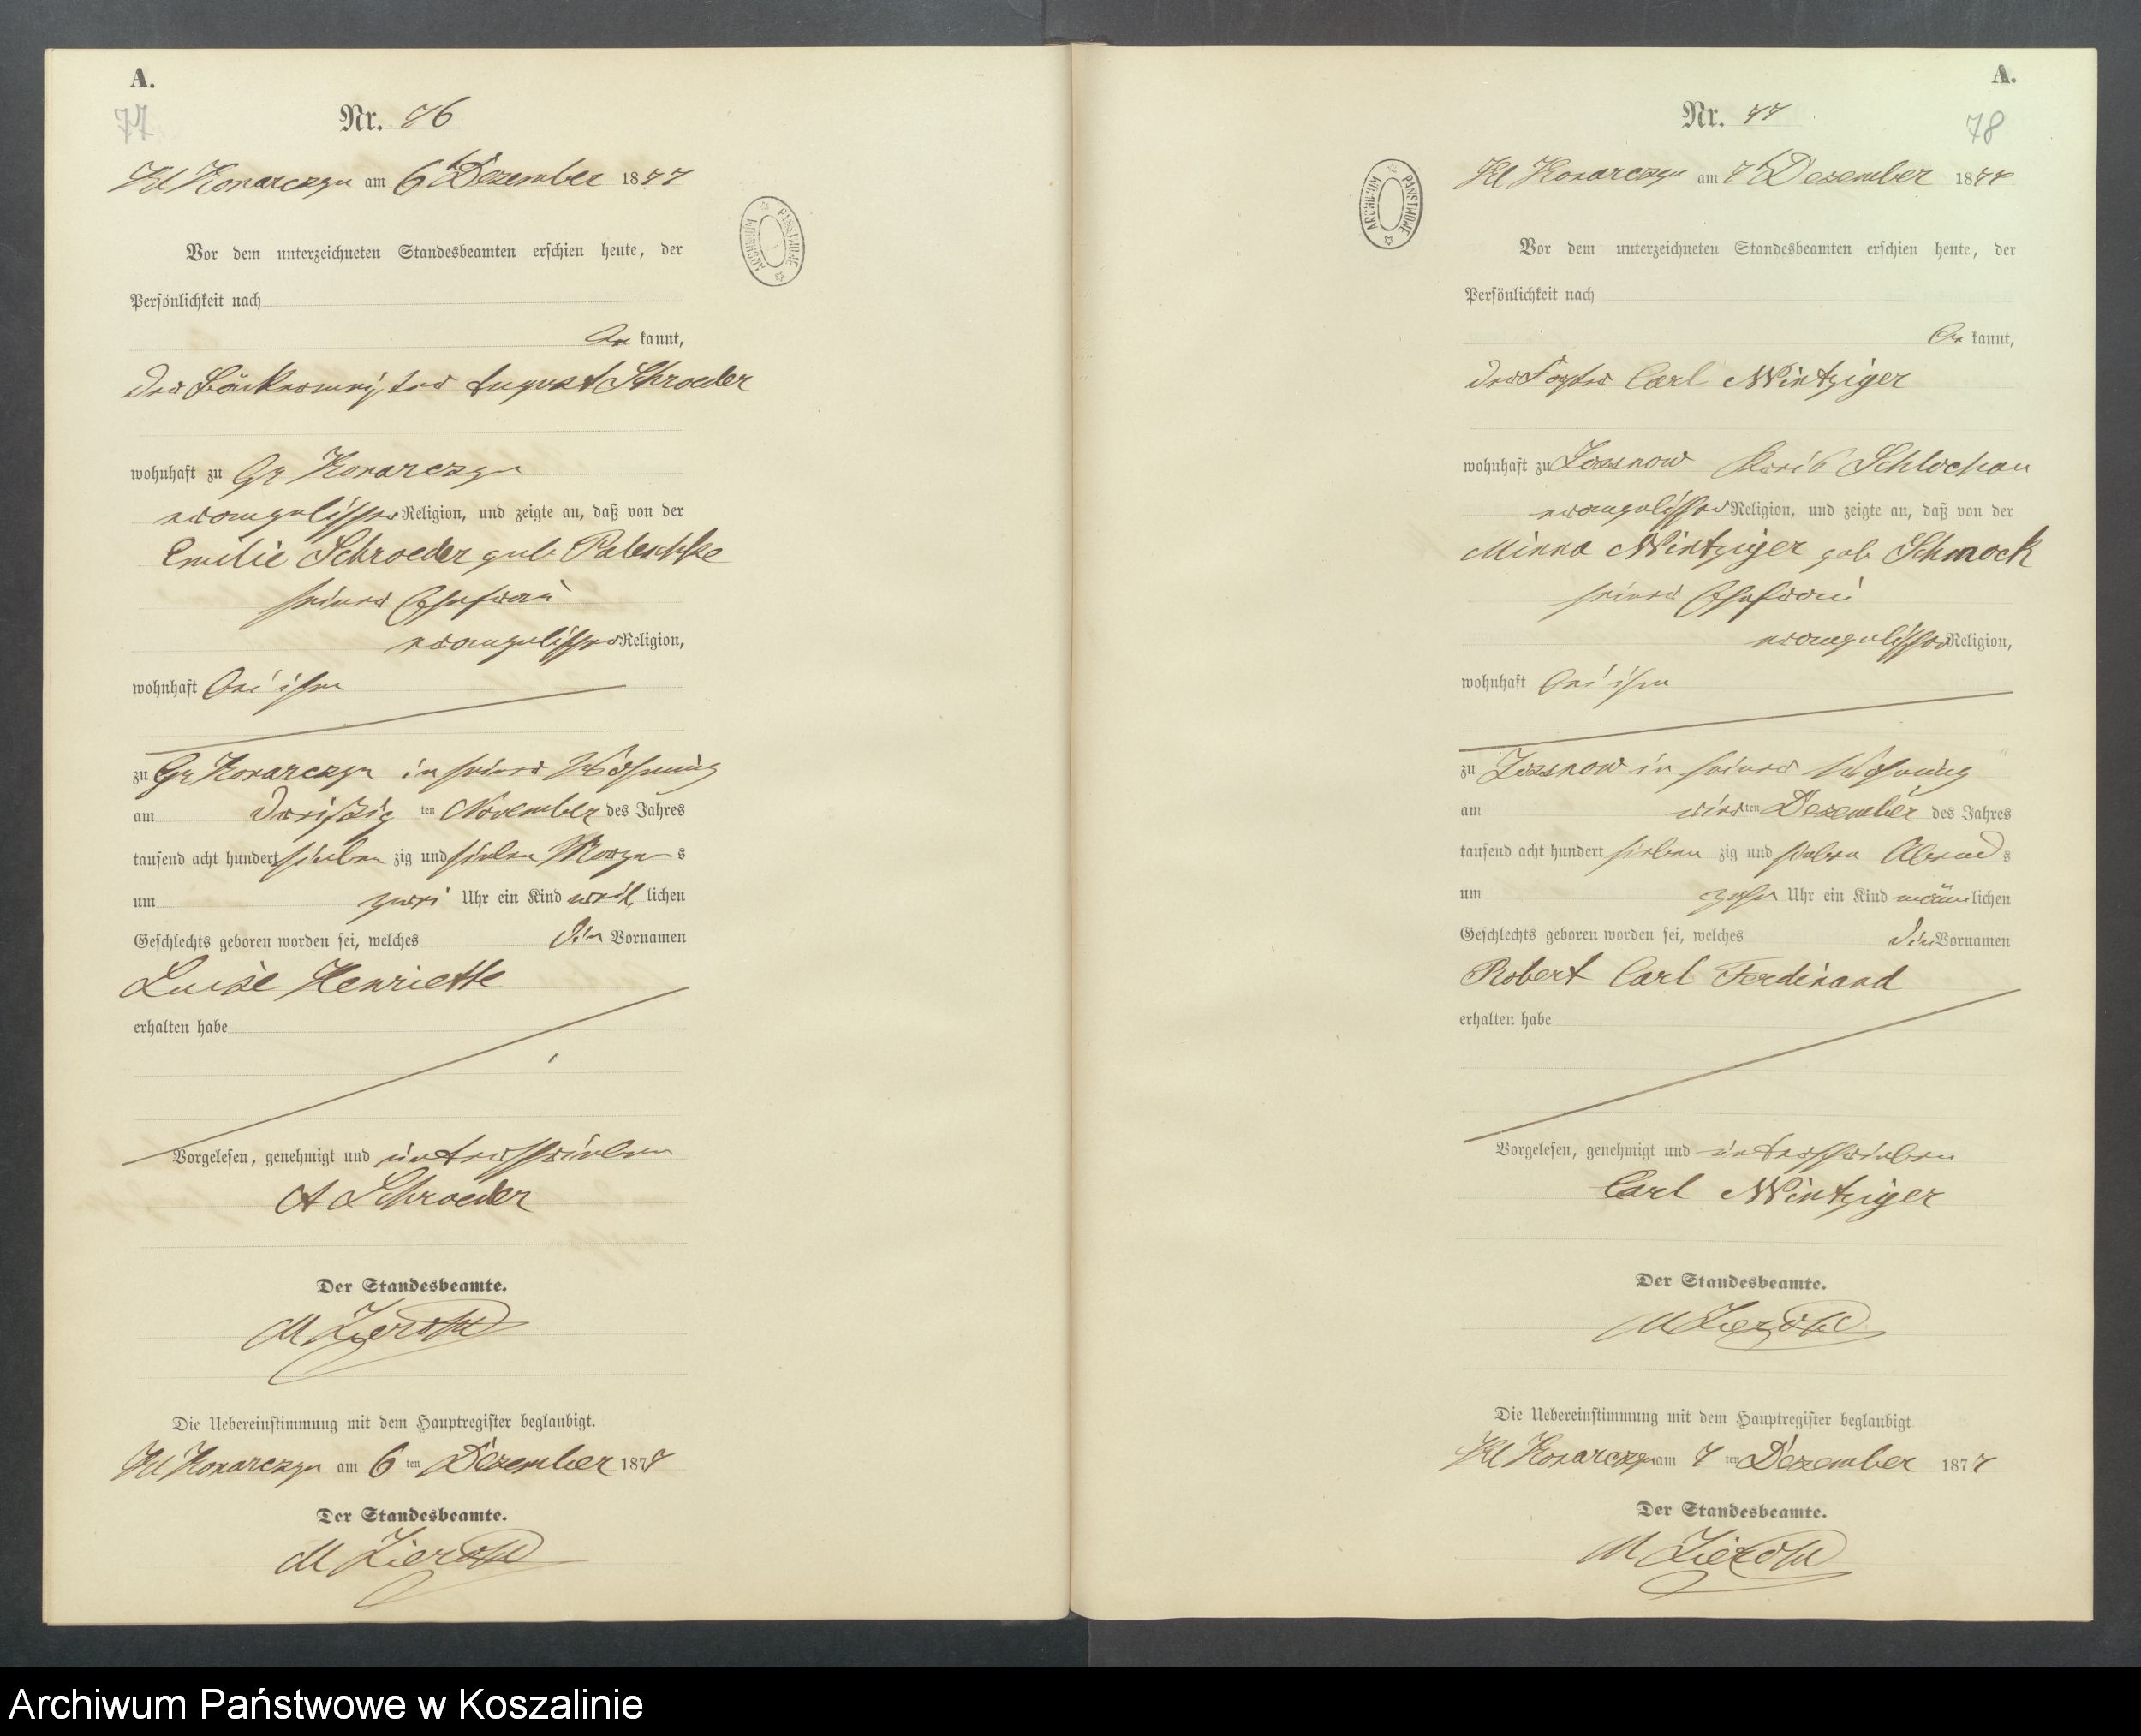 A.
77
Nr. 76
Kl Konarczyn am 6t Dezember 1877
ARCHIWUM PAŃSTWOWE
Vor dem unterzeichneten Standesbeamten erschien heute, der
Persönlichkeit nach
be kannt,
der Bäckermeister August Schroeder
wohnhaft zu Gr Konarczyn
evangelischer Religion, und zeigte an, daß von der
Emilie Schroeder geb
seiner Ehefrau
evangelischer Religion,
wohnhaft bei ihm
zu Gr Konarczyn in seiner Wohnung
am dreißig ten November des Jahres
tausend acht hundert sieben zig und sieben Morgen s
um zwei Uhr ein Kind weib lichen
Geschlechts geboren worden sei, welches die Vornamen
Luise Henriette
erhalten habe
Vorgelesen, genehmigt und unterschrieben
A Schroeder
Der Standesbeamte.
Die Uebereinstimmung mit dem Hauptregister beglaubigt.
Kl Konarczyn am 6 ten Dezember 1877
Der Standesbeamte.
A.
Nr. 77
78
Kl Konarczyn am 7t Dezember 1877
ARCHIWUM PAŃSTWOWE
Vor dem unterzeichneten Standesbeamten erschien heute, der
Persönlichkeit nach
be kannt,
der Carl Wintziger
wohnhaft zu Kreis Schlochau
evangelischer Religion, und zeigte an, daß von der
Minna Wintziger geb Schmock
seiner Ehefrau
evangelischer Religion,
wohnhaft bei ihm
zu in seiner Wohnung
am vier ten Dezember des Jahres
tausend acht hundert sieben zig und sieben Abend s
um zehn Uhr ein Kind männ lichen
Geschlechts geboren worden sei, welches die Vornamen
Robert Carl Ferdinand
erhalten habe
Vorgelesen, genehmigt und unterschrieben
Carl Wintziger
Der Standesbeamte.
Die Uebereinstimmung mit dem Hauptregister beglaubigt
Kl Konarczyn am 7 ten Dezember 1877
Der Standesbeamte.
Archiwum Państwowe w Koszalinie